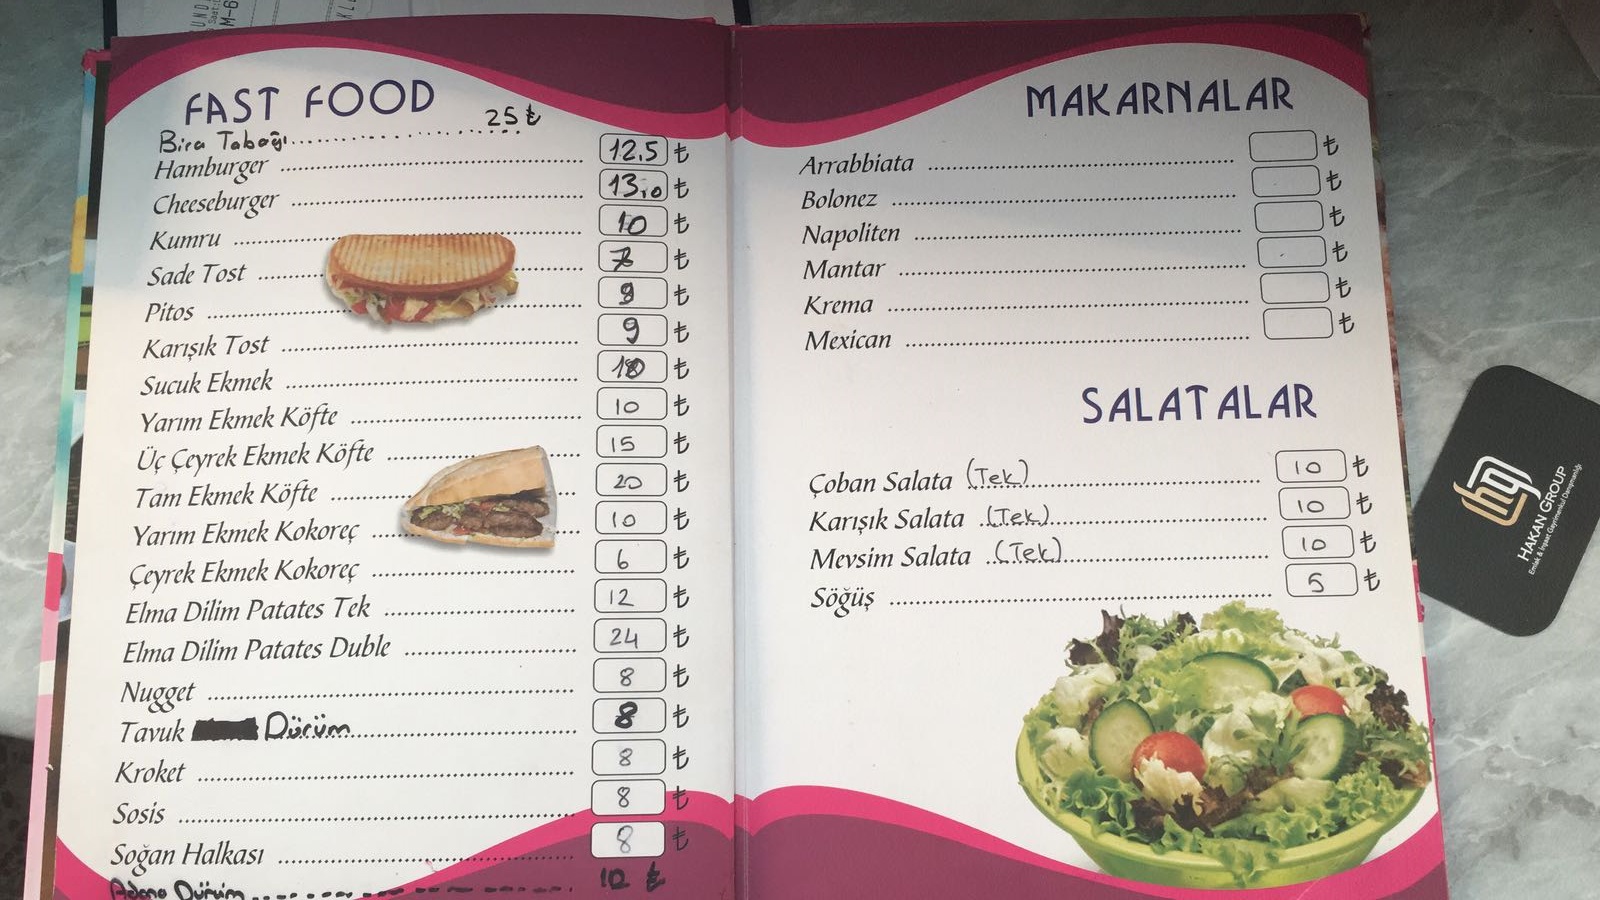 FAST FOOD
Bira Tabağı 25 ₺
Hamburger 12.5 ₺
Cheeseburger 13,0 ₺
Kumru 10 ₺
Sade Tost 7 ₺
Pitos 9 ₺
Karışık Tost 9 ₺
Sucuk Ekmek ₺
Yarım Ekmek Köfte 10 ₺
Üç Çeyrek Ekmek Köfte 15 ₺
Tam Ekmek Köfte 20 ₺
Yarım Ekmek Kokoreç 10 ₺
Çeyrek Ekmek Kokoreç 6 ₺
Elma Dilim Patates Tek 12 ₺
Elma Dilim Patates Duble 24 ₺
Nugget 8 ₺
Tavuk Dürüm 8 ₺
Kroket 8 ₺
Sosis 8 ₺
Soğan Halkası 8 ₺
Adana Dürüm 10 ₺
MAKARNALAR
Arrabbiata ₺
Bolonez ₺
Napoliten ₺
Mantar ₺
Krema ₺
Mexican ₺
SALATALAR
Çoban Salata (Tek) 10 ₺
Karışık Salata (Tek) 10 ₺
Mevsim Salata (Tek) 10 ₺
Söğüş 5 ₺
hg
HAKAN GROUP
Emlak & İnşaat Gayrimenkul Danışmanlığı